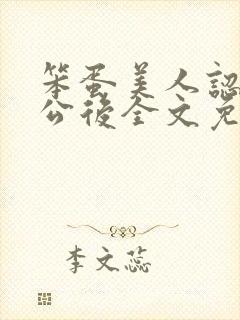 笨蛋美人認
公後全文免
李文蕊